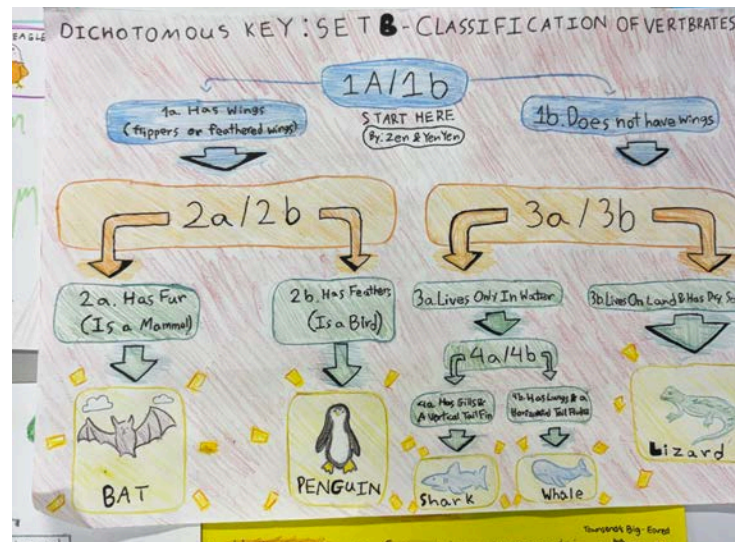 EAGLE
DICHOTOMOUS KEY: SET B - CLASSIFICATION OF VERTBRATES
1A/1b
START HERE
(By: Zen & YenYen)
1a. Has Wings
(flippers or feathered wings)
1b. Does not have wings
2a/2b
3a/3b
2a. Has Fur
(Is a Mammal)
2b. Has Feathers
(Is a Bird)
3a. Lives Only In Water
3b Lives On Land & Has Dry
4a/4b
4a. Has Gills &
A Vertical Tail Fin
4b. Has Lungs & a
Horizontal Tail Fluke
BAT
PENGUIN
Shark
Whale
Lizard
Townsend's Big-Eared